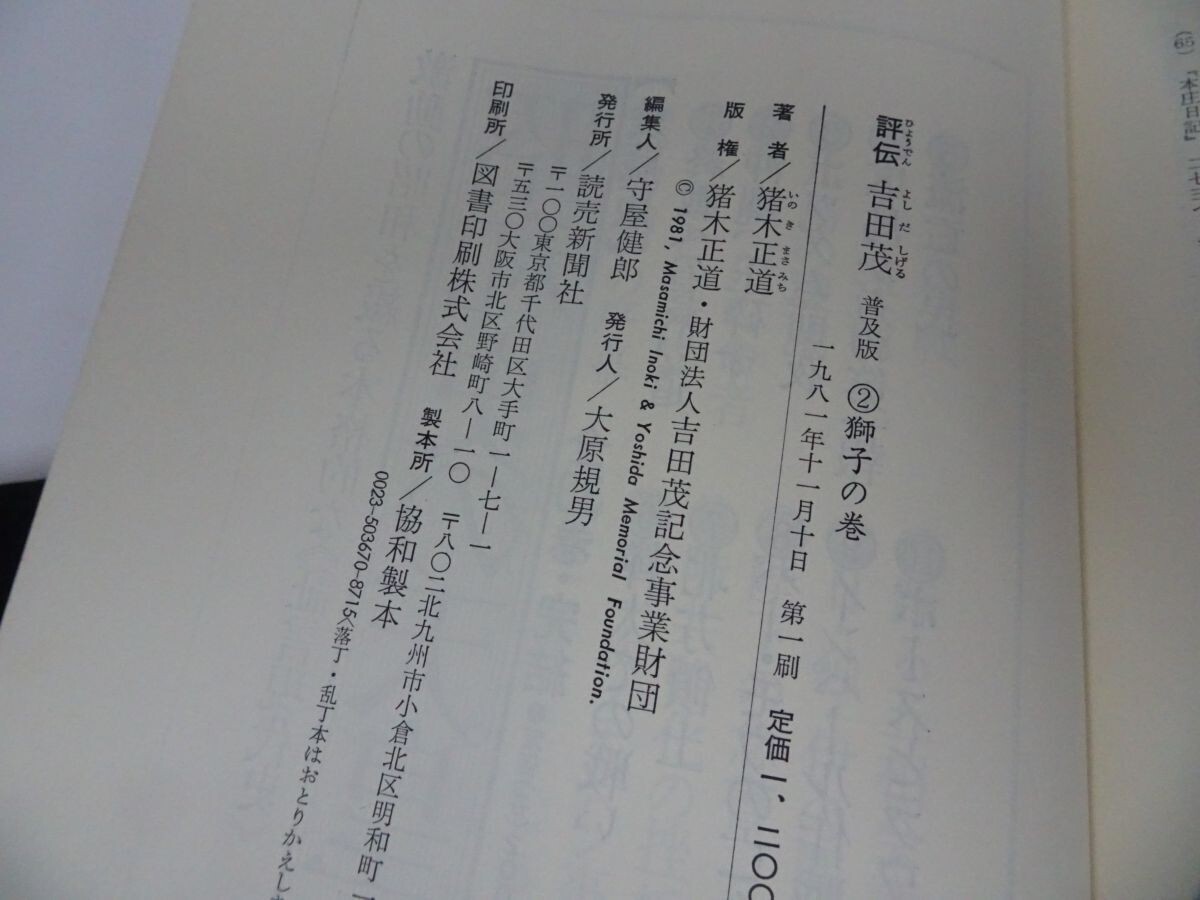 評伝 吉田茂 普及版 ②獅子の巻
ひょうでん よしだ しげる
一九八一年十一月十日 第一刷 定価一、二〇〇
著者/猪木正道
いのき まさみち
版権/猪木正道・財団法人吉田茂記念事業財団
© 1981, Masamichi Inoki & Yoshida Memorial Foundation.
編集人/守屋健郎 発行人/大原規男
発行所/読売新聞社
〒一〇〇東京都千代田区大手町一−七−一
〒五三〇大阪市北区野崎町八−一〇 〒八〇二北九州市小倉北区明和町一
印刷所/図書印刷株式会社 製本所/協和製本
0023-503670-8715〈落丁・乱丁本はおとりかえしま
(65) 『本田日記』